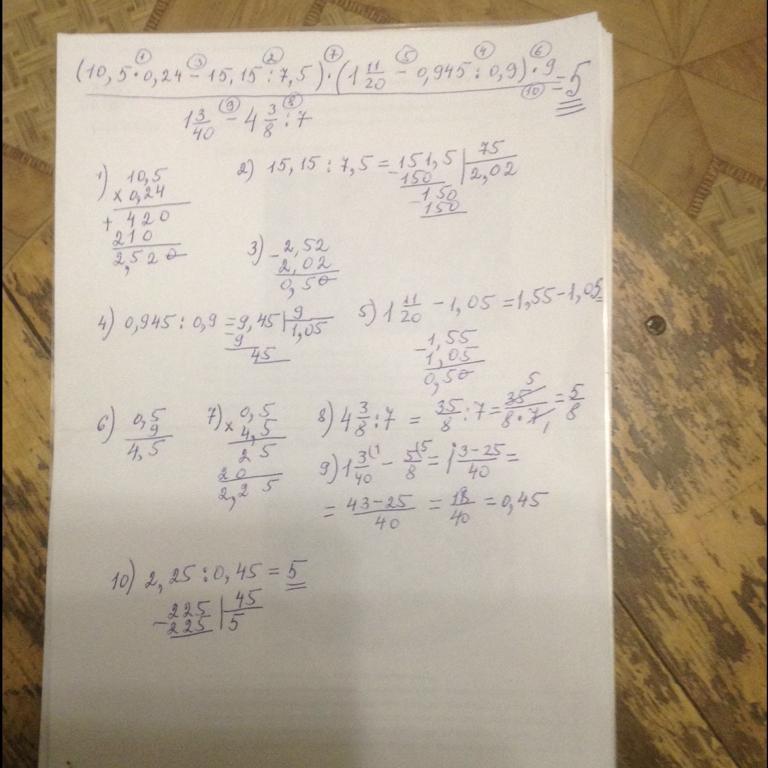 (10,5 · 0,24 - 15,15 : 7,5) · (1 11/20 - 0,945 : 0,9) · 9 = 5
1 3/40 - 4 3/8 : 7
① ③ ② ⑦ ⑤ ④ ⑥ ⑨ ⑧ ⑩
1) 10,5
× 0,24
+ 420
210
2,520
2) 15,15 : 7,5 = 151,5 | 75
-150 2,02
-150
150
3) -2,52
2,02
0,50
4) 0,945 : 0,9 = 9,45 | 9
-9 1,05
45
5) 1 11/20 - 1,05 = 1,55 - 1,05 =
-1,55
1,05
0,50
6) 0,5
9
4,5
7) × 0,5
4,5
25
20
2,25
8) 4 3/8 : 7 = 35/8 : 7 = 35 5/8 · 7 1 = 5/8
9) 1 3/40 (1 - 5/8 (5 = 1 3-25/40 =
= 43-25/40 = 18/40 = 0,45
10) 2,25 : 0,45 = 5
-225 | 45
225 5